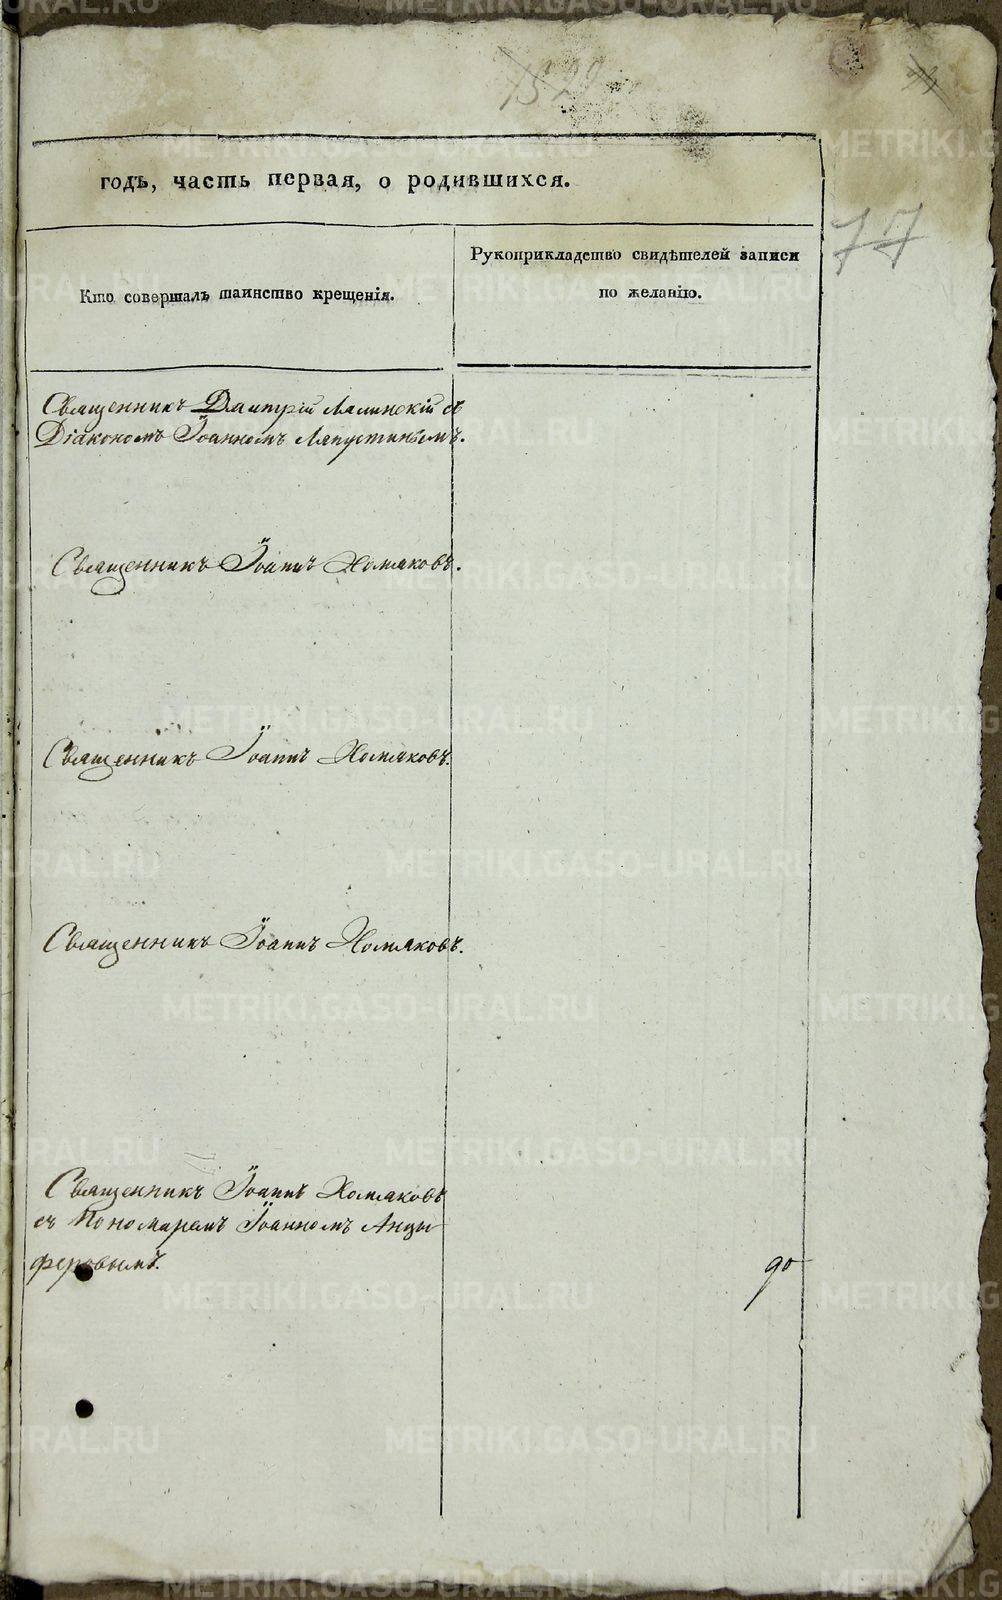 1529
77
годъ, часть первая, о родившихся.
Кто совершалъ таинство крещенія.
Рукоприкладство свидѣтелей записи
по желанію.
Священникъ Димитрій Ляминскій съ
Діакономъ Іоанномъ Ляпустинымъ.
Священникъ Іоаннъ Хомяковъ.
Священникъ Іоаннъ Хомяковъ.
Священникъ Іоаннъ Хомяковъ.
Священникъ Іоаннъ Хомяковъ
съ Пономаремъ Іоанномъ Анцы
феровымъ.
90
METRIKI.GASO-URAL.RU